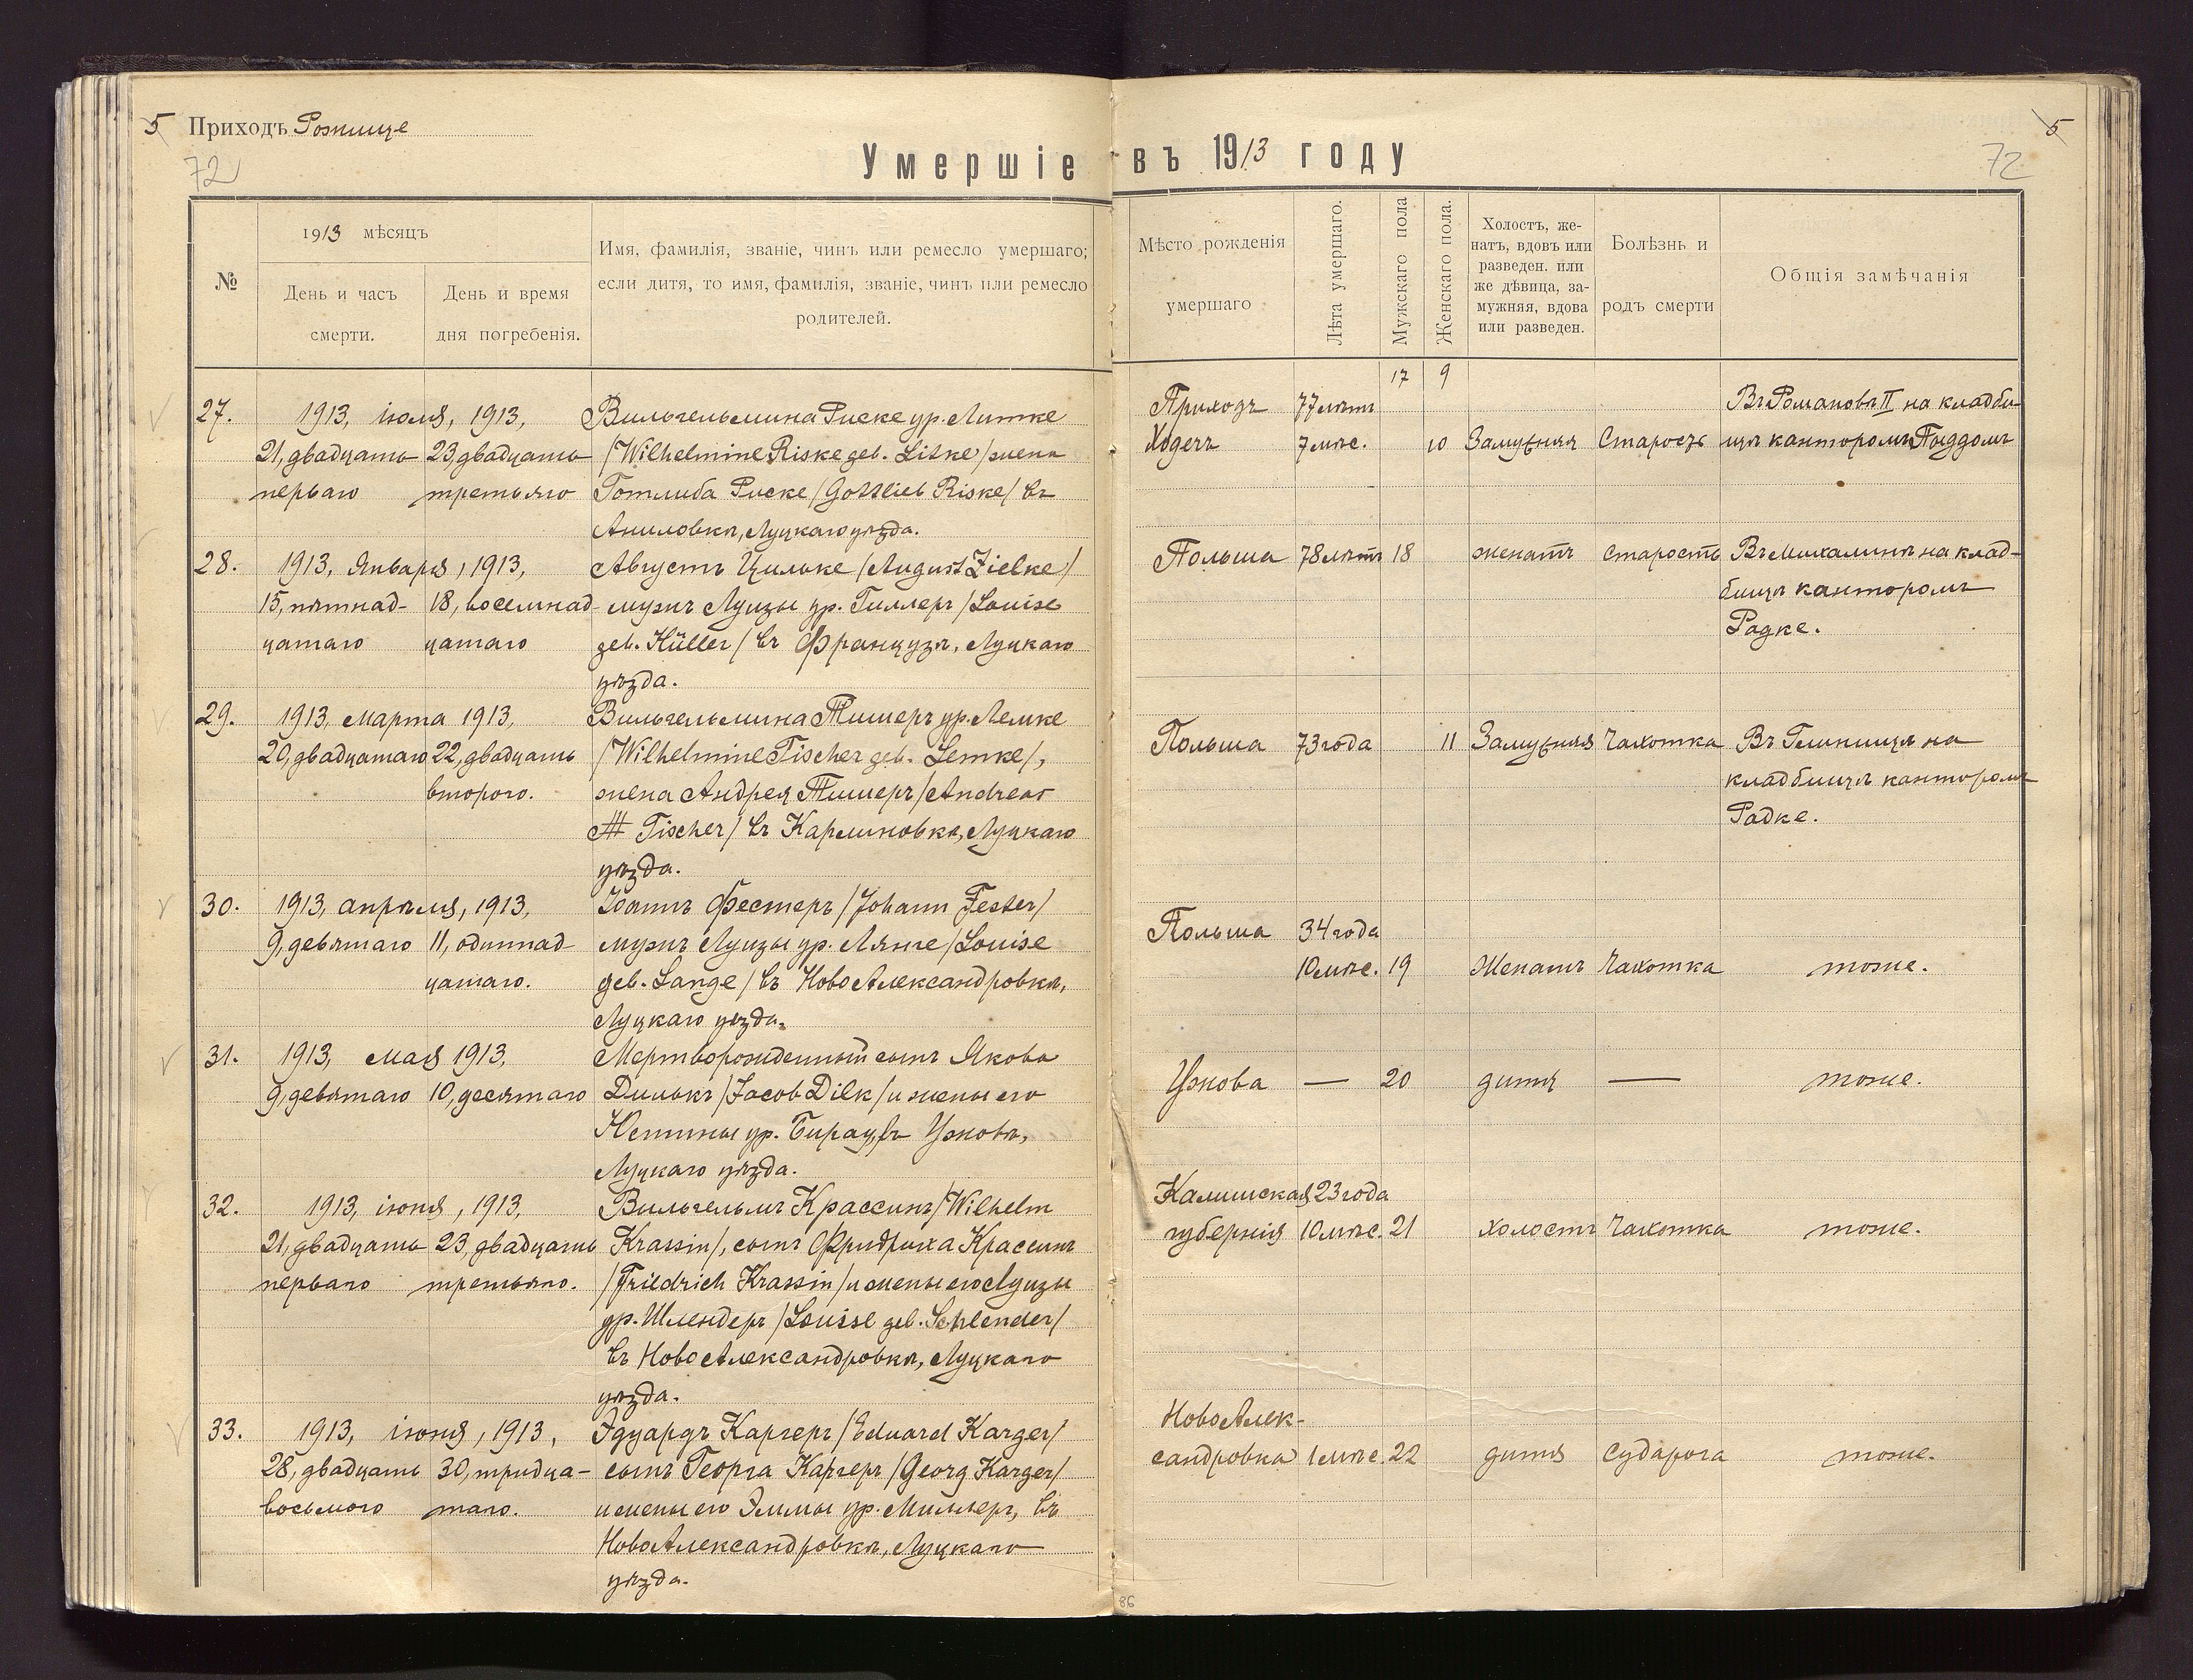 5 Приходъ Рожище
5
72
72
Умершіе въ 1913 году
№
1913 мѣсяцъ
День и часъ
смерти.
День и время
дня погребенія.
Имя, фамилія, званіе, чинъ или ремесло умершаго;
если дитя, то имя, фамилія, званіе, чинъ или ремесло
родителей.
Мѣсто рожденія
умершаго
Лѣта умершаго.
Мужскаго пола
Женскаго пола.
Холостъ, же-
натъ, вдовъ или
разведен. или
же дѣвица, за-
мужняя, вдова
или разведен.
Болѣзнь и
родъ смерти
Общія замѣчанія
17 9
27. 1913, іюля, 1913, Вильгельмина Риске ур. Литке
21, двадцать 23, двадцать /Wilhelmine Riske geb. Litke/ жена
перваго третьяго Готлиба Риске /Gottlieb Riske/ въ
Аниловкѣ, Луцкаго уѣзда.
Приходъ 77 лѣтъ Въ Романовъ II на кладби-
Ходечъ 7 мѣс. 10 Замужняя Старость щѣ канторомъ
28. 1913, Января, 1913, Августъ Цильке /August Zielke/
15, пятнад- 18, восемнад- мужъ Луизы ур. Гиллеръ /Louise
цатаго цатаго geb. Hüller/ въ Французѣ, Луцкаго
уѣзда.
Польша 78 лѣтъ 18 женатъ старость Въ Михалинѣ на клад-
бищѣ канторомъ
Радке.
29. 1913, марта 1913, Вильгельмина Тишеръ ур. Лемке
20, двадцатаго 22, двадцать /Wilhelmine Tischer geb. Lemke/,
второго. жена Андрея Тишеръ /Andreas
Tischer/ въ Карлиновкѣ, Луцкаго
уѣзда.
Польша 73 года 11 Замужняя Чахотка Въ Глинищѣ на
кладбищѣ канторомъ
Радке.
30. 1913, апрѣля, 1913, Іоаннъ Фестеръ /Johann Fester/
9, девятаго 11, одиннад- мужъ Луизы ур. Лянге /Louise
цатаго. geb. Lange/ въ НовоАлександровкѣ,
Луцкаго уѣзда.
Польша 34 года
10 мѣс. 19 Женатъ Чахотка тоже.
31. 1913, мая 1913, Мертворожденный сынъ Якова
9, девятаго 10, десятаго Дилькъ /Jacob Dilk/ и жены его
Юстины ур. Бирау, въ Ужовѣ,
Луцкаго уѣзда.
Ужова — 20 дитя — тоже.
32. 1913, іюня, 1913, Вильгельмъ Крассинъ /Wilhelm
21, двадцать 23, двадцать Krassin/, сынъ Фридриха Крассинъ
перваго третьяго. /Friedrich Krassin/ и жены его Луизы
ур. Шлендеръ /Louise geb. Schlender/
въ НовоАлександровкѣ, Луцкаго
уѣзда.
Калишская 23 года
губернія 10 мѣс. 21 холостъ Чахотка тоже.
33. 1913, іюня, 1913, Эдуардъ Каргеръ /Eduard Karger/
28, двадцать 30, тридца- сынъ Георга Каргеръ /Georg Karger/
восьмого таго. и жены его Эммы ур. Миллеръ, въ
НовоАлександровкѣ, Луцкаго
уѣзда.
НовоАлек-
сандровка 1 мѣс. 22 дитя судорога тоже.
86